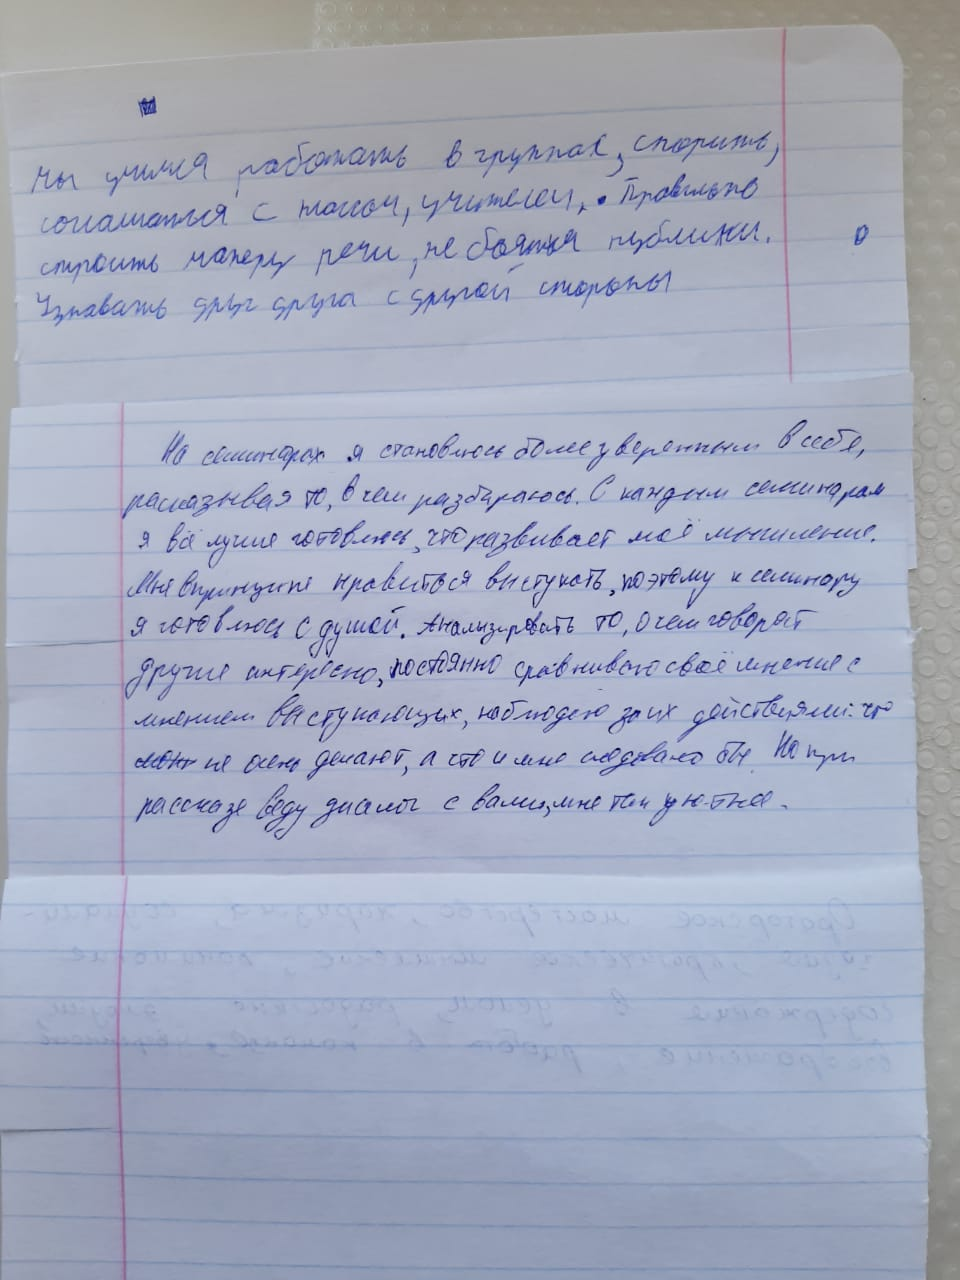 Мы учимся работать в группах, спорить,
соглашаться с классом, учителем,. Правильно
строить манеру речи, не боятся публики.
Узнавать друг друга с другой стороны
На семинарах я становлюсь более уверенным в себе,
рассказывая то, в чем разбераюсь. С каждым семинаром
я всё лучше готовлюсь, что развивает моё мышление.
Мне впринципе нравиться выступать, поэтому к семинару
я готовлюсь с душой. Анализировать то, о чем говорят
другие интересно, постоянно сравниваю своё мнение с
мнением выступающих, наблюдаю за их действиями: что
не очень делают, а что и мне следовало бы. Но при
рассказе веду диалог с вами, мне так уютнее.
Ораторское мастерство, харизма,
критическое мышление, понимание
содержания в целом, радостно
работа в команде,